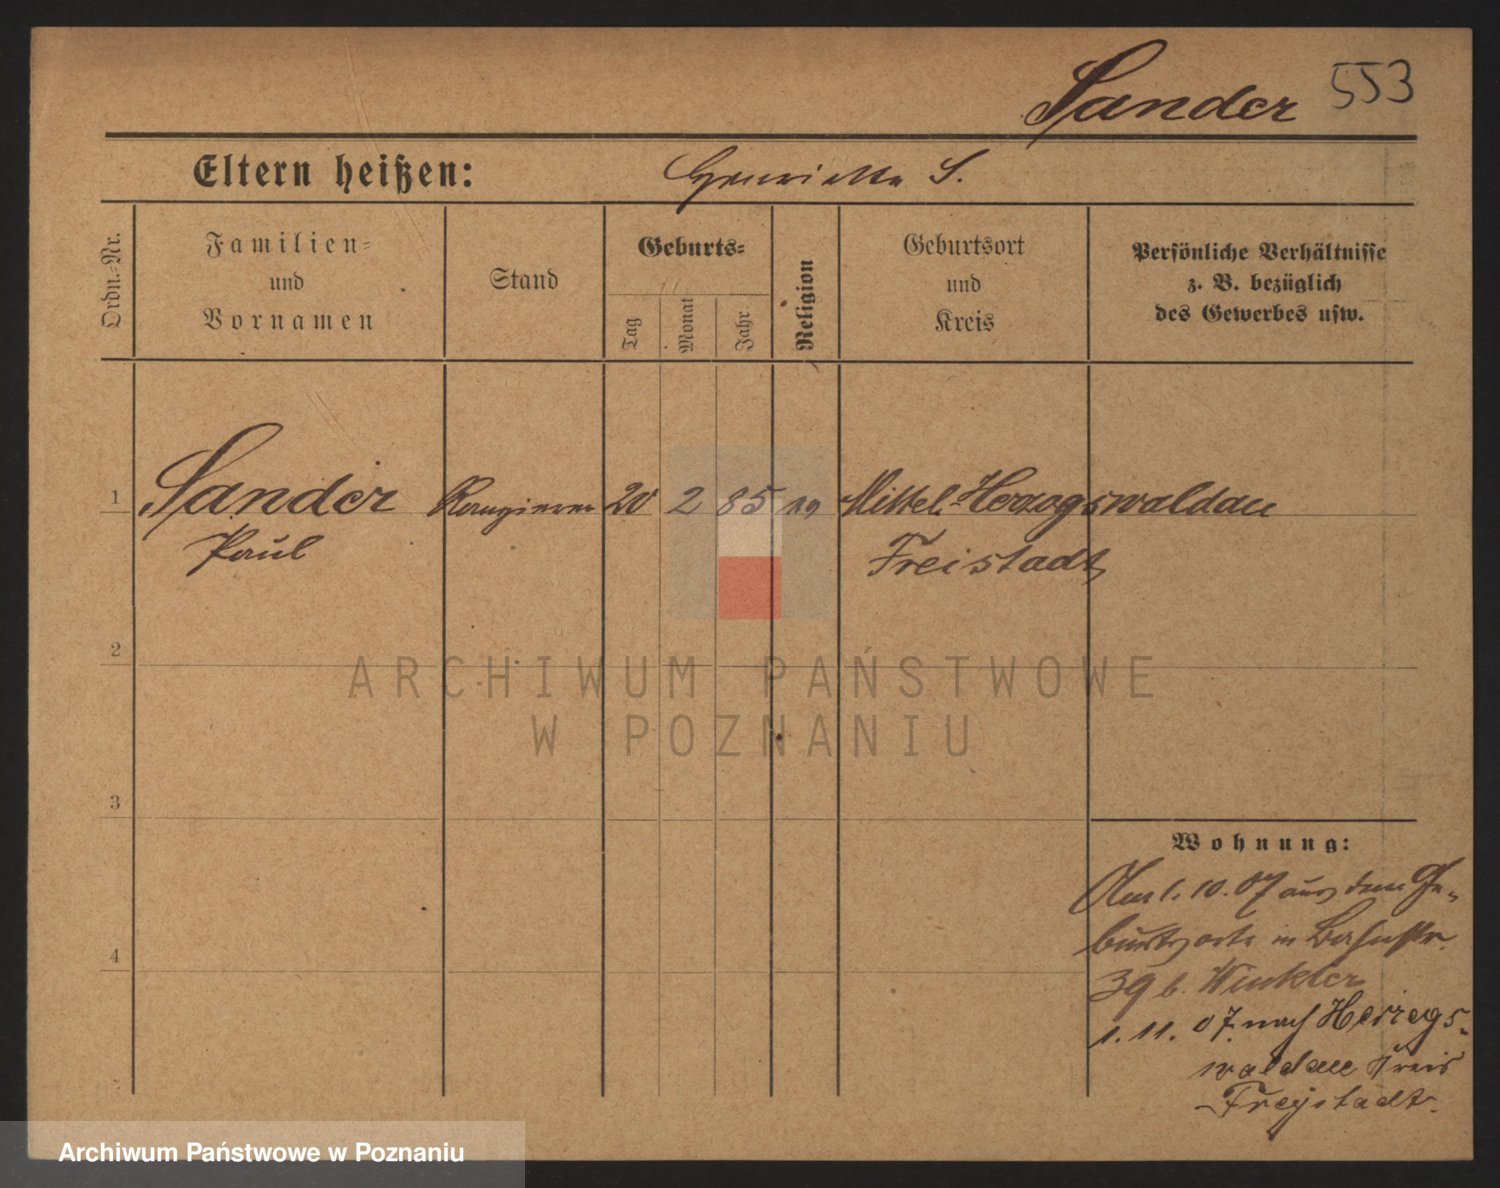 Sander 553
Eltern heißen: Henriette S.
Ordn.-Nr.
Familien-
und
Vornamen
Stand
Geburts-
Tag
Monat
Jahr
Religion
Geburtsort
und
Kreis
Persönliche Verhältnisse
z. B. bezüglich
des Gewerbes usw.
1 Sander Rangierer 20 2 85 Mittel-Herzogswaldau
Paul Freistadt
2
3
4
Wohnung:
Am 1. 10. 07 aus dem Ge-
burtsorte in Bahnstr.
39 b. Winkler
1. 11. 07. nach Herzogs-
waldau Kreis
Freystadt.
ARCHIWUM PAŃSTWOWE
W POZNANIU
Archiwum Państwowe w Poznaniu